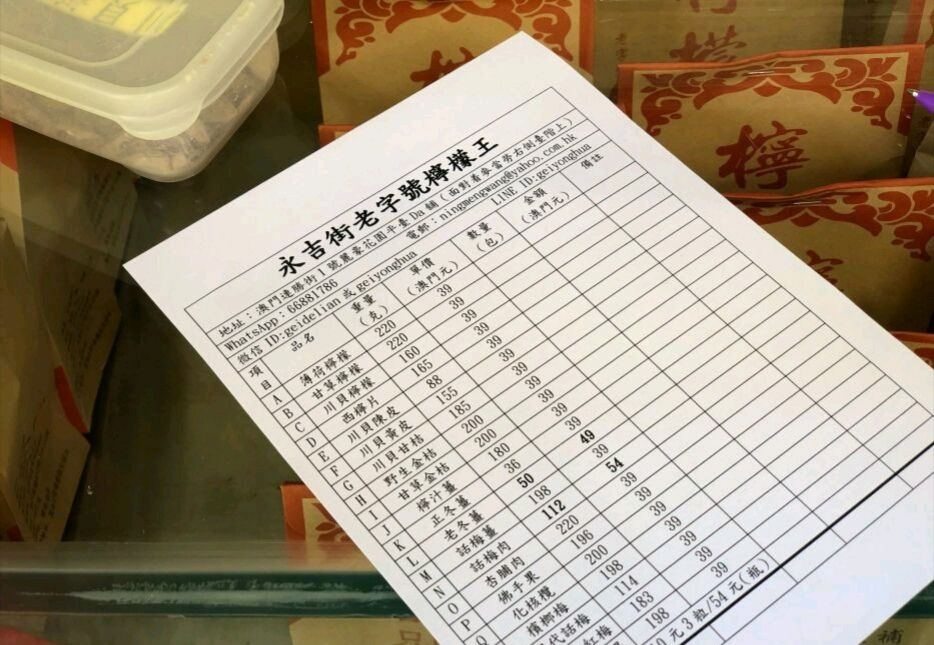 永吉街老字號檸檬王
地址：澳門連勝街1號麗豪花園平臺Da舖（面對看麥當勞右側臺階上）
WhatsApp：66881786 電郵：ningmengwang@yahoo.com.hk
微信 ID:geidelian 或 geiyonghua LINE ID:geiyonghua
項目 品名 重量（克） 單價（澳門元） 數量（包） 金額（澳門元） 備註
A 薄荷檸檬 220 39
B 甘草檸檬 220 39
C 川貝檸檬 160 39
D 西檸片 165 39
E 川貝陳皮 88 39
F 川貝黃皮 155 39
G 川貝甘桔 185 39
H 野生金桔 200 39
I 甘草金桔 200 39
J 檸汁薑 180 39
K 正冬薑 36 39
L 老冬薑 50 49
M 話梅薑 198 39
N 話梅肉 112 54
O 杏脯肉 220 39
P 佛手果 196 39
Q 化核欖 200 39
檳榔梅 198 39
代話梅 114 39
紅梅 183 39
198
0元3粒/54元(瓶)
檸
補